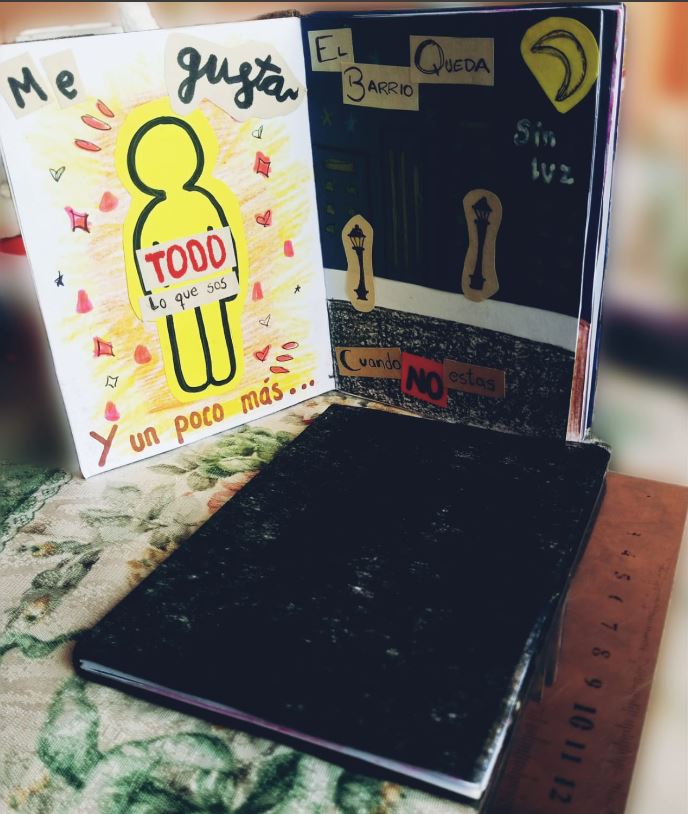 Me gusta
TODO
Lo que sos
Y un poco más...
EL
BARRIO
QUEDA
Sin
luz
Cuando NO estas
4 5 6 7 8 9 10 11 12